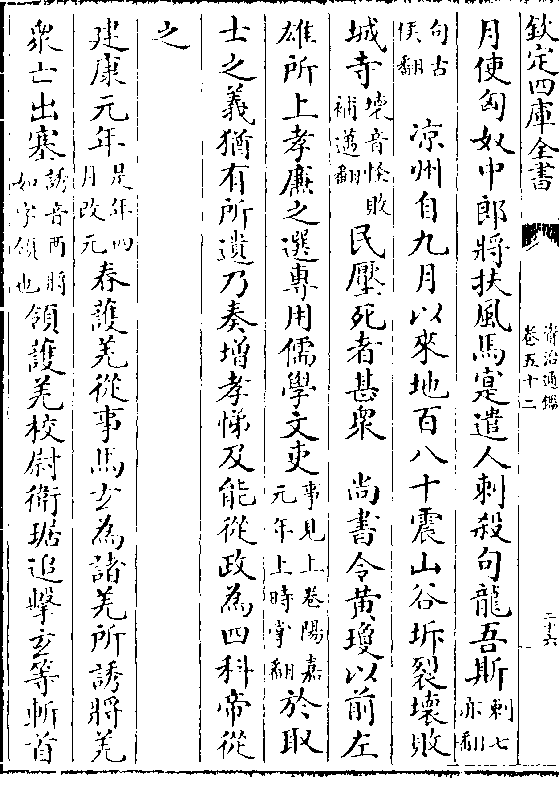 欽定四庫全書
資治通鑑
卷五十二
二十六
月使匈奴中郎將扶風馬寔遣人刺殺句龍吾斯刺七亦翻
句古侯翻 涼州自九月以來地百八十震山谷坼裂壞敗
城寺壞音怪敗補邁翻民壓死者甚衆 尚書令黄瓊以前左
雄所上孝廉之選專用儒學文吏事見上卷陽嘉元年上時掌翻於取
士之義猶有所遺乃奏增孝悌及能從政為四科帝從
之
建康元年是年四月改元春護羌從事馬玄為諸羌所誘將羌
衆亡出塞誘音酉將如字領也領護羌校尉衛琚追擊玄等斬首